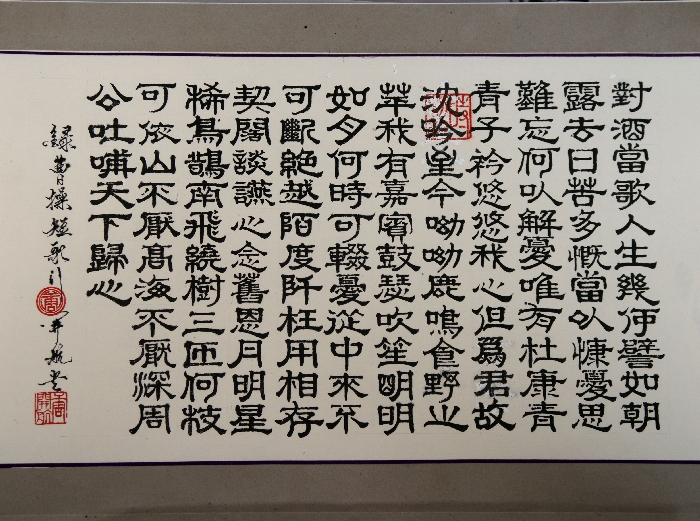 對酒當歌人生幾何譬如朝
露去日苦多慨當以慷憂思
難忘何以解憂唯有杜康青
青子衿悠悠我心但爲君故
沈吟至今呦呦鹿鳴食野之
苹我有嘉賓鼓瑟吹笙明明
如月何時可輟憂從中來不
可斷絕越陌度阡枉用相存
契闊談讌心念舊恩月明星
稀烏鵲南飛繞樹三匝何枝
可依山不厭高海不厭深周
公吐哺天下歸心
錄曹操短歌行